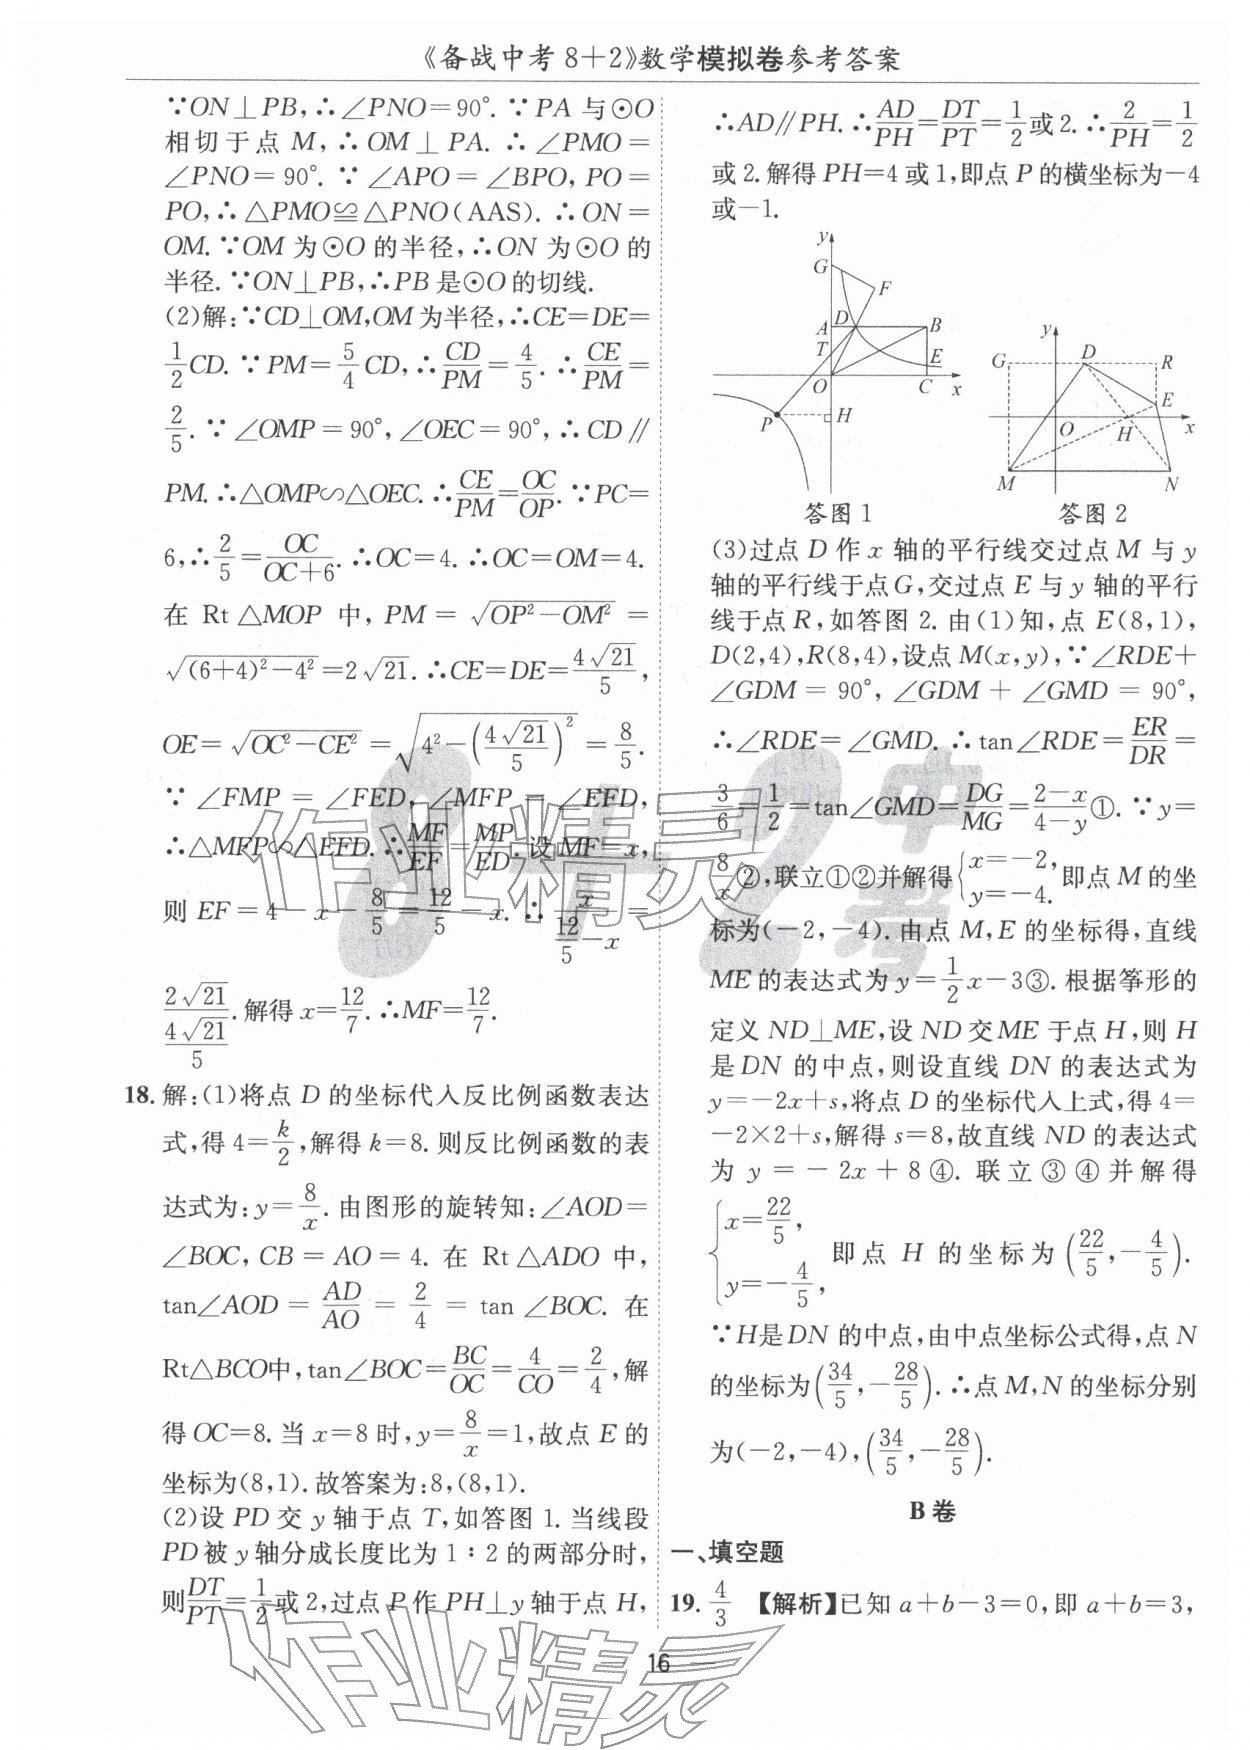 《备战中考8+2》数学模拟卷参考答案
∵ON⊥PB,∴∠PNO=90°.∵PA与⊙O
相切于点M,∴OM⊥PA.∴∠PMO=
∠PNO=90°.∵∠APO=∠BPO,PO=
PO,∴△PMO≌△PNO(AAS).∴ON=
OM.∵OM为⊙O的半径,∴ON为⊙O的
半径.∵ON⊥PB,∴PB是⊙O的切线.
(2)解:∵CD⊥OM,OM为半径,∴CE=DE=
1/2CD.∵PM=5/4CD,∴CD/PM=4/5.∴CE/PM=
2/5.∵∠OMP=90°,∠OEC=90°,∴CD∥
PM.∴△OMP∽△OEC.∴CE/PM=OC/OP.∵PC=
6,∴2/5=OC/(OC+6).∴OC=4.∴OC=OM=4.
在Rt△MOP中,PM=√(OP²-OM²)=
√((6+4)²-4²)=2√21.∴CE=DE=4√21/5,
OE=√(OC²-CE²)=√(4²-(4√21/5)²)=8/5.
∵∠FMP=∠FED,∠MFP=∠EFD,
∴△MFP∽△EFD.∴MF/EF=MP/ED.设MF=x,
则EF=4-x-8/5=12/5-x.∴x/(12/5-x)=
2√21/(4√21/5).解得x=12/7.∴MF=12/7.
18.解:(1)将点D的坐标代入反比例函数表达
式,得4=k/2,解得k=8.则反比例函数的表
达式为:y=8/x.由图形的旋转知:∠AOD=
∠BOC,CB=AO=4.在Rt△ADO中,
tan∠AOD=AD/AO=2/4=tan∠BOC.在
Rt△BCO中,tan∠BOC=BC/OC=4/CO=2/4,解
得OC=8.当x=8时,y=8/x=1,故点E的
坐标为(8,1).故答案为:8,(8,1).
(2)设PD交y轴于点T,如答图1.当线段
PD被y轴分成长度比为1∶2的两部分时,
则DT/PT=1/2或2,过点P作PH⊥y轴于点H,
∴AD∥PH.∴AD/PH=DT/PT=1/2或2.∴2/PH=1/2
或2.解得PH=4或1,即点P的横坐标为-4
或-1.
y
G
F
A
D
B
T
E
O
C
x
P
H
答图1
y
G
D
R
E
O
H
x
M
N
答图2
(3)过点D作x轴的平行线交过点M与y
轴的平行线于点G,交过点E与y轴的平行
线于点R,如答图2.由(1)知,点E(8,1),
D(2,4),R(8,4),设点M(x,y),∵∠RDE+
∠GDM=90°,∠GDM+∠GMD=90°,
∴∠RDE=∠GMD.∴tan∠RDE=ER/DR=
3/6=1/2=tan∠GMD=DG/MG=(2-x)/(4-y)①.∵y=
8/x②,联立①②并解得{x=-2,y=-4.即点M的坐
标为(-2,-4).由点M,E的坐标得,直线
ME的表达式为y=1/2x-3③.根据筝形的
定义ND⊥ME,设ND交ME于点H,则H
是DN的中点,则设直线DN的表达式为
y=-2x+s,将点D的坐标代入上式,得4=
-2×2+s,解得s=8,故直线ND的表达式
为y=-2x+8④.联立③④并解得
{x=22/5,y=-4/5,即点H的坐标为(22/5,-4/5).
∵H是DN的中点,由中点坐标公式得,点N
的坐标为(34/5,-28/5).∴点M,N的坐标分别
为(-2,-4),(34/5,-28/5).
B卷
一、填空题
19.4/3 【解析】已知a+b-3=0,即a+b=3,
16
8+2
中考
作业精灵
作业精灵